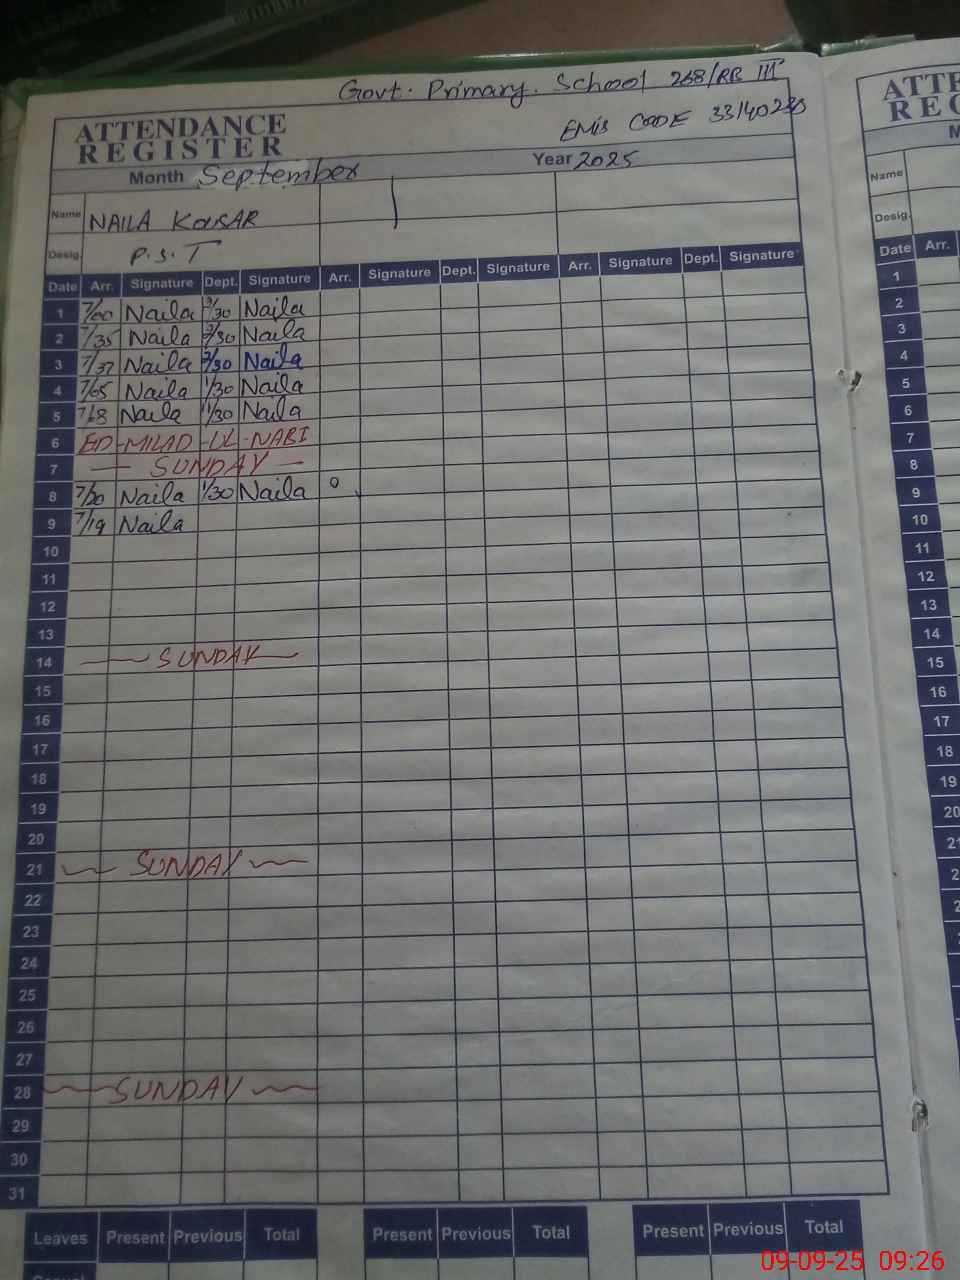 Govt. Primary. School 268/RB III
ATTENDANCE
REGISTER
EMIS CODE 33140230
Month September Year 2025
Name NAILA KOUSAR
Desig. P.S.T
Date Arr. Signature Dept. Signature Arr. Signature Dept. Signature Arr. Signature Dept. Signature
1 7/00 Naila 3/30 Naila
2 7/35 Naila 2/30 Naila
3 7/37 Naila 2/30 Naila
4 7/05 Naila 1/30 Naila
5 7/18 Naila 1/30 Naila
6 EID-MILAD-UL-NABI
7 — SUNDAY —
8 7/20 Naila 1/30 Naila
9 7/19 Naila
10
11
12
13
14 SUNDAY
15
16
17
18
19
20
21 SUNDAY
22
23
24
25
26
27
28 SUNDAY
29
30
31
Leaves Present Previous Total Present Previous Total Present Previous Total
Name
Desig.
Date Arr.
1
2
3
4
5
6
7
8
9
10
11
12
13
14
15
16
17
18
19
20
09-09-25 09:26